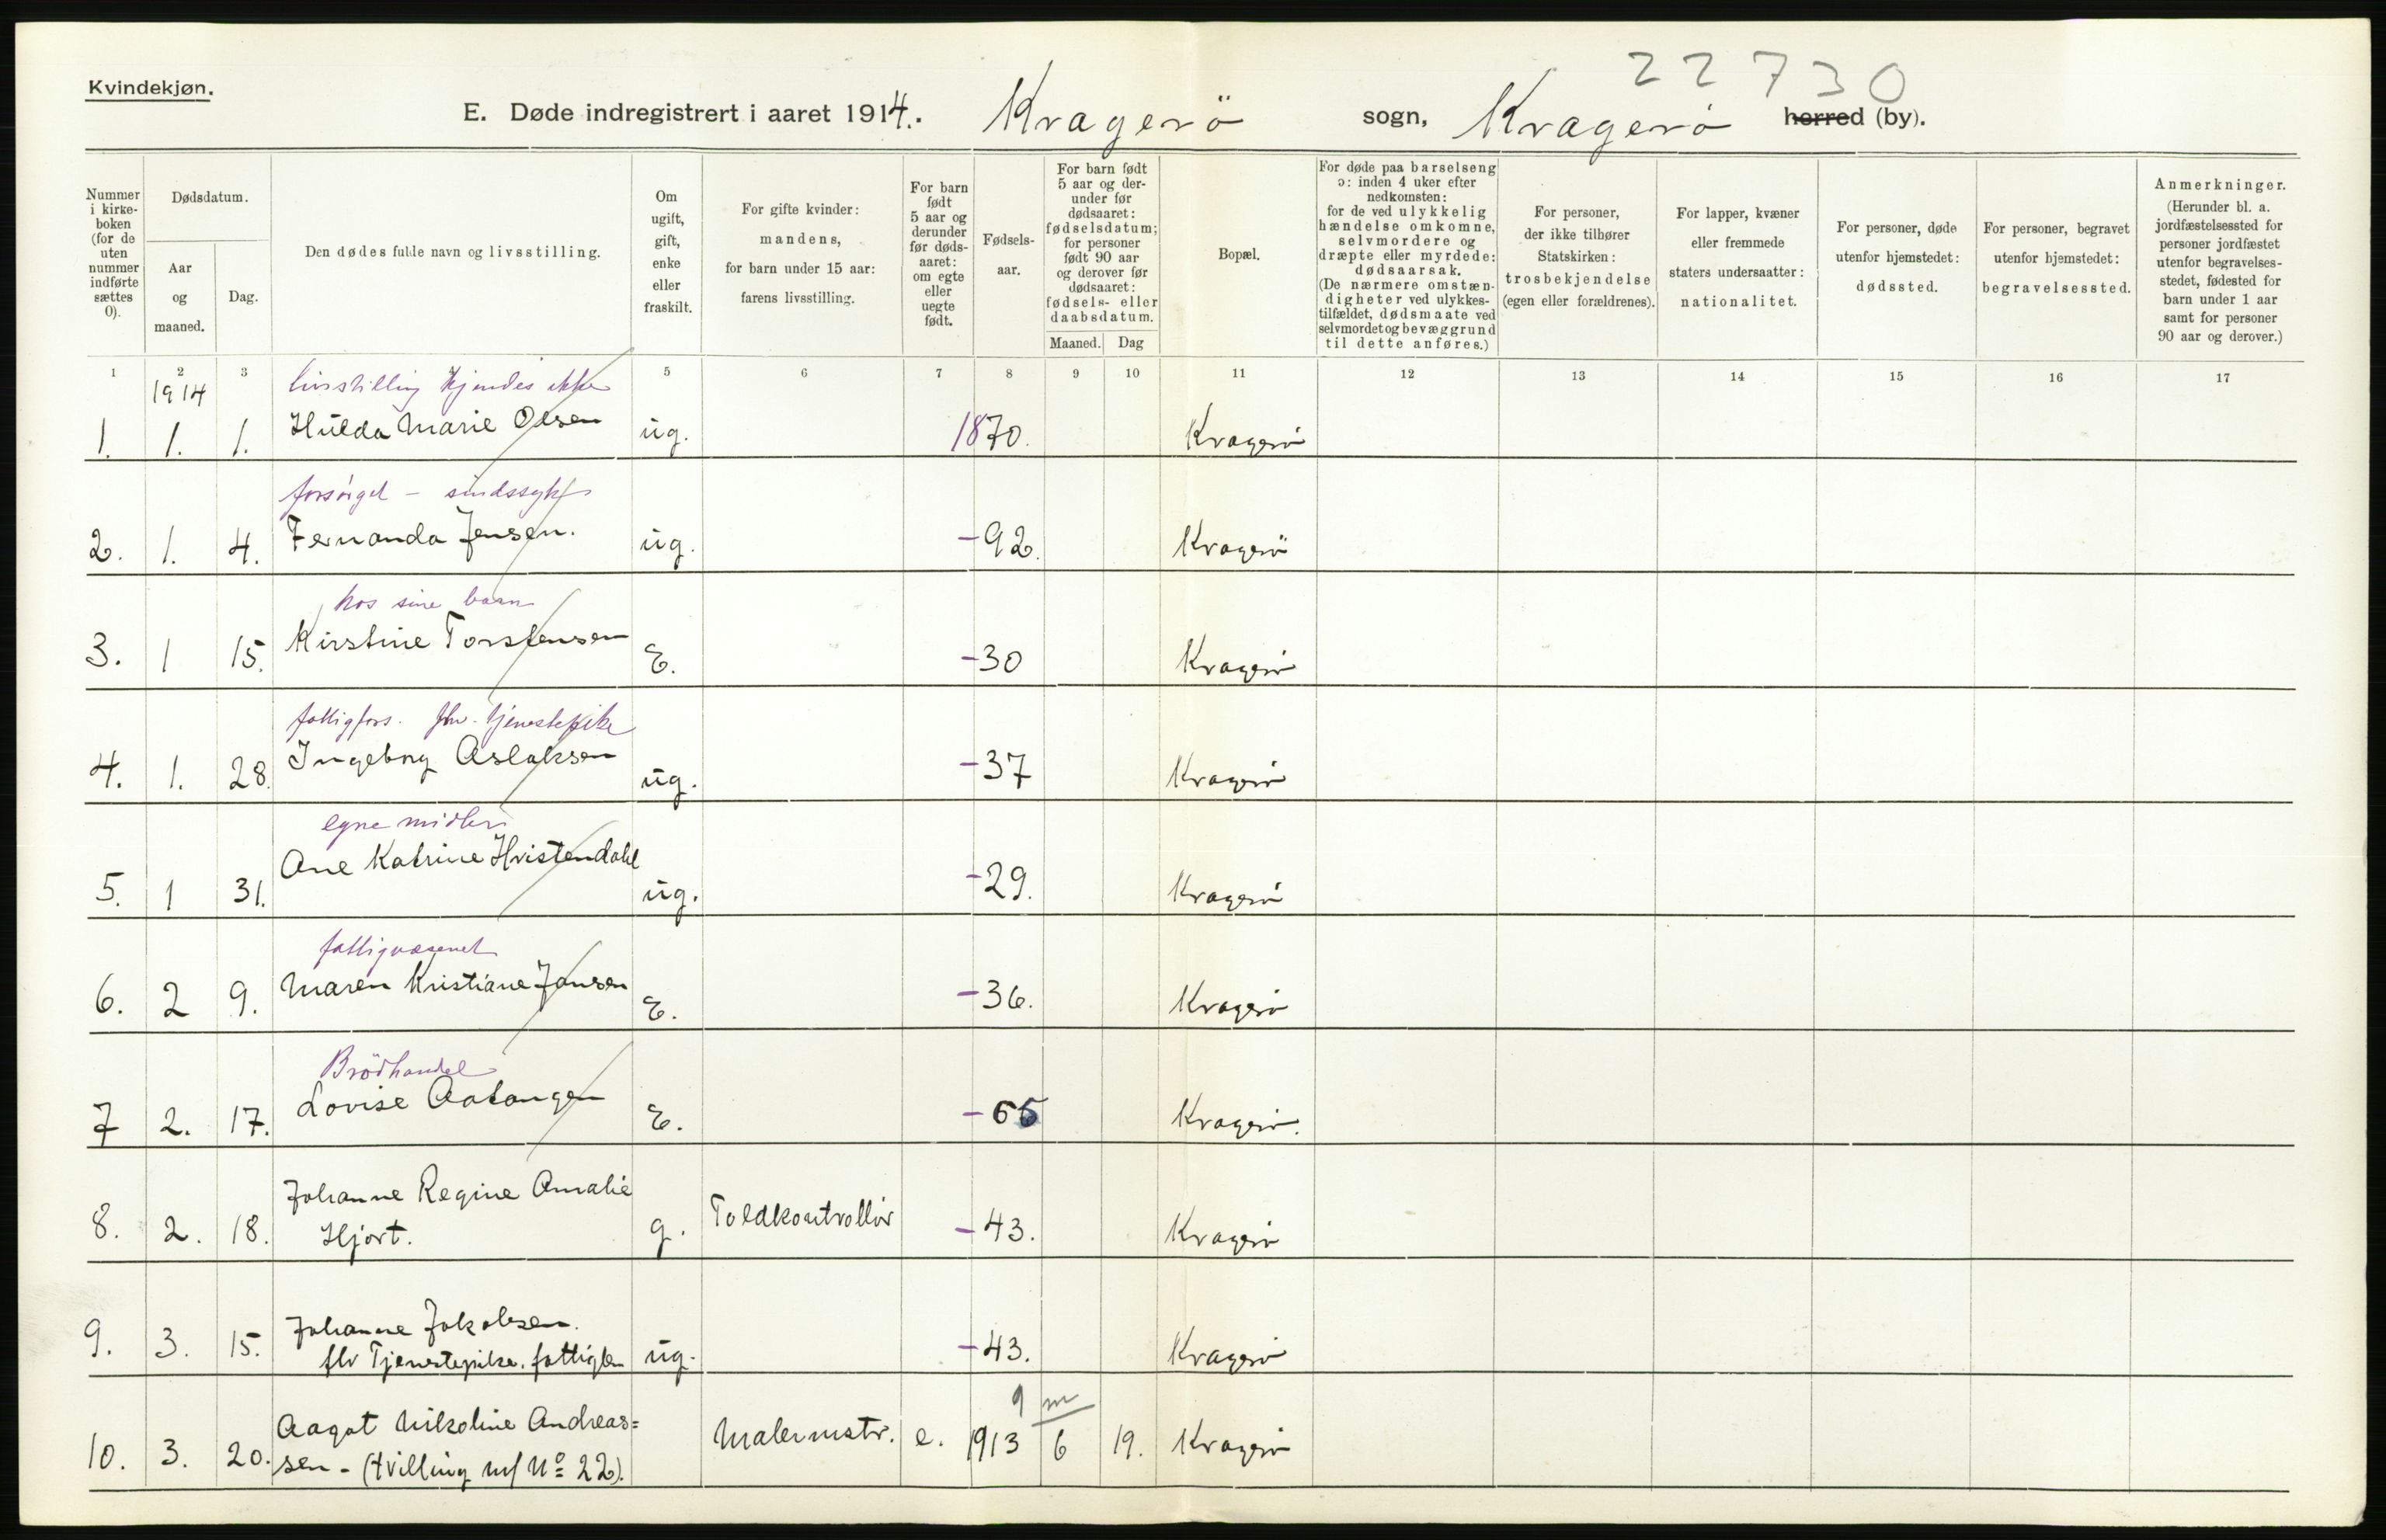 Kvindekjøn.
22730
E. Døde indregistrert i aaret 1914. Kragerö sogn, Kragerö herred (by).
Nummer i kirke-boken (for de uten nummer indførte sættes 0).
Dødsdatum.
Aar og maaned.
Dag.
Den dødes fulde navn og livsstilling.
Om ugift, gift, enke eller fraskilt.
For gifte kvinder: mandens, for barn under 15 aar: farens livsstilling.
For barn født 5 aar og derunder før døds-aaret: om egte eller uegte født.
Fødsels-aar.
For barn født 5 aar og der-under før dødsaaret: fødselsdatum; for personer født 90 aar og derover før dødsaaret: fødsels- eller daabsdatum.
Maaned. Dag
Bopæl.
For døde paa barselseng ɔ: inden 4 uker efter nedkomsten: for de ved ulykkelig hændelse omkomne, selvmordere og dræpte eller myrdede: dødsaarsak. (De nærmere omstæn-digheter ved ulykkes-tilfældet, dødsmaate ved selvmordet og bevæggrund til dette anføres.)
For personer, der ikke tilhører Statskirken: trosbekjendelse (egen eller forældrenes).
For lapper, kvæner eller fremmede staters undersaatter: nationalitet.
For personer, døde utenfor hjemstedet: dødssted.
For personer, begravet utenfor hjemstedet: begravelsessted.
Anmerkninger. (Herunder bl. a. jordfæstelsessted for personer jordfæstet utenfor begravelses-stedet, fødested for barn under 1 aar samt for personer 90 aar og derover.)
1 2 3 4 5 6 7 8 9 10 11 12 13 14 15 16 17
1914 livsstilling kjendes ikke
1. 1. 1. Hulda Marie Olsen ug. 1870. Kragerö
forsörget - sindssyk
2. 1. 4. Fernanda Jensen. ug. -92. Kragerö
hos sine barn
3. 1 15. Kirstine Torstensen E. -30 Kragerö
fattigfors. fhv. tjenestepike
4. 1. 28. Ingeborg Aslaksen ug. -37 Kragerö
egne midler
5. 1 31. Ane Katrine Hvistendahl ug. -29. Kragerö
fattigvæsenet
6. 2 9. Maren Kristiane Jansen E. -36. Kragerö
Brödhandel
7 2. 17. Lovise Aatangen E. -65 Kragerö.
8. 2. 18. Johanne Regine Amalie
Hjort. g. Toldkontrollör -43. Kragerö
9. 3. 15. Johanne Jakobsen.
fhv Tjenestepike. fattiglem ug. -43. Kragerö
9 m
10. 3. 20. Aagot Nikoline Andreas=
sen - (tvilling m/ No 22). Malermstr. e. 1913 6 19. Kragerö